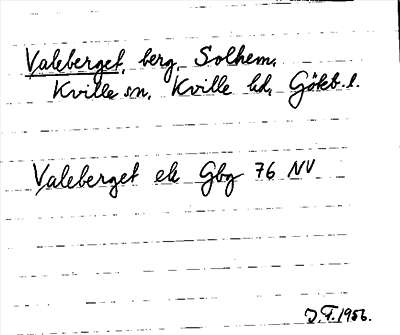 Valeberget, berg, Solhem,
Kville sn, Kville hd, Göteb. l.
Valeberget ek Gbg 76 NV
J.F. 1956.